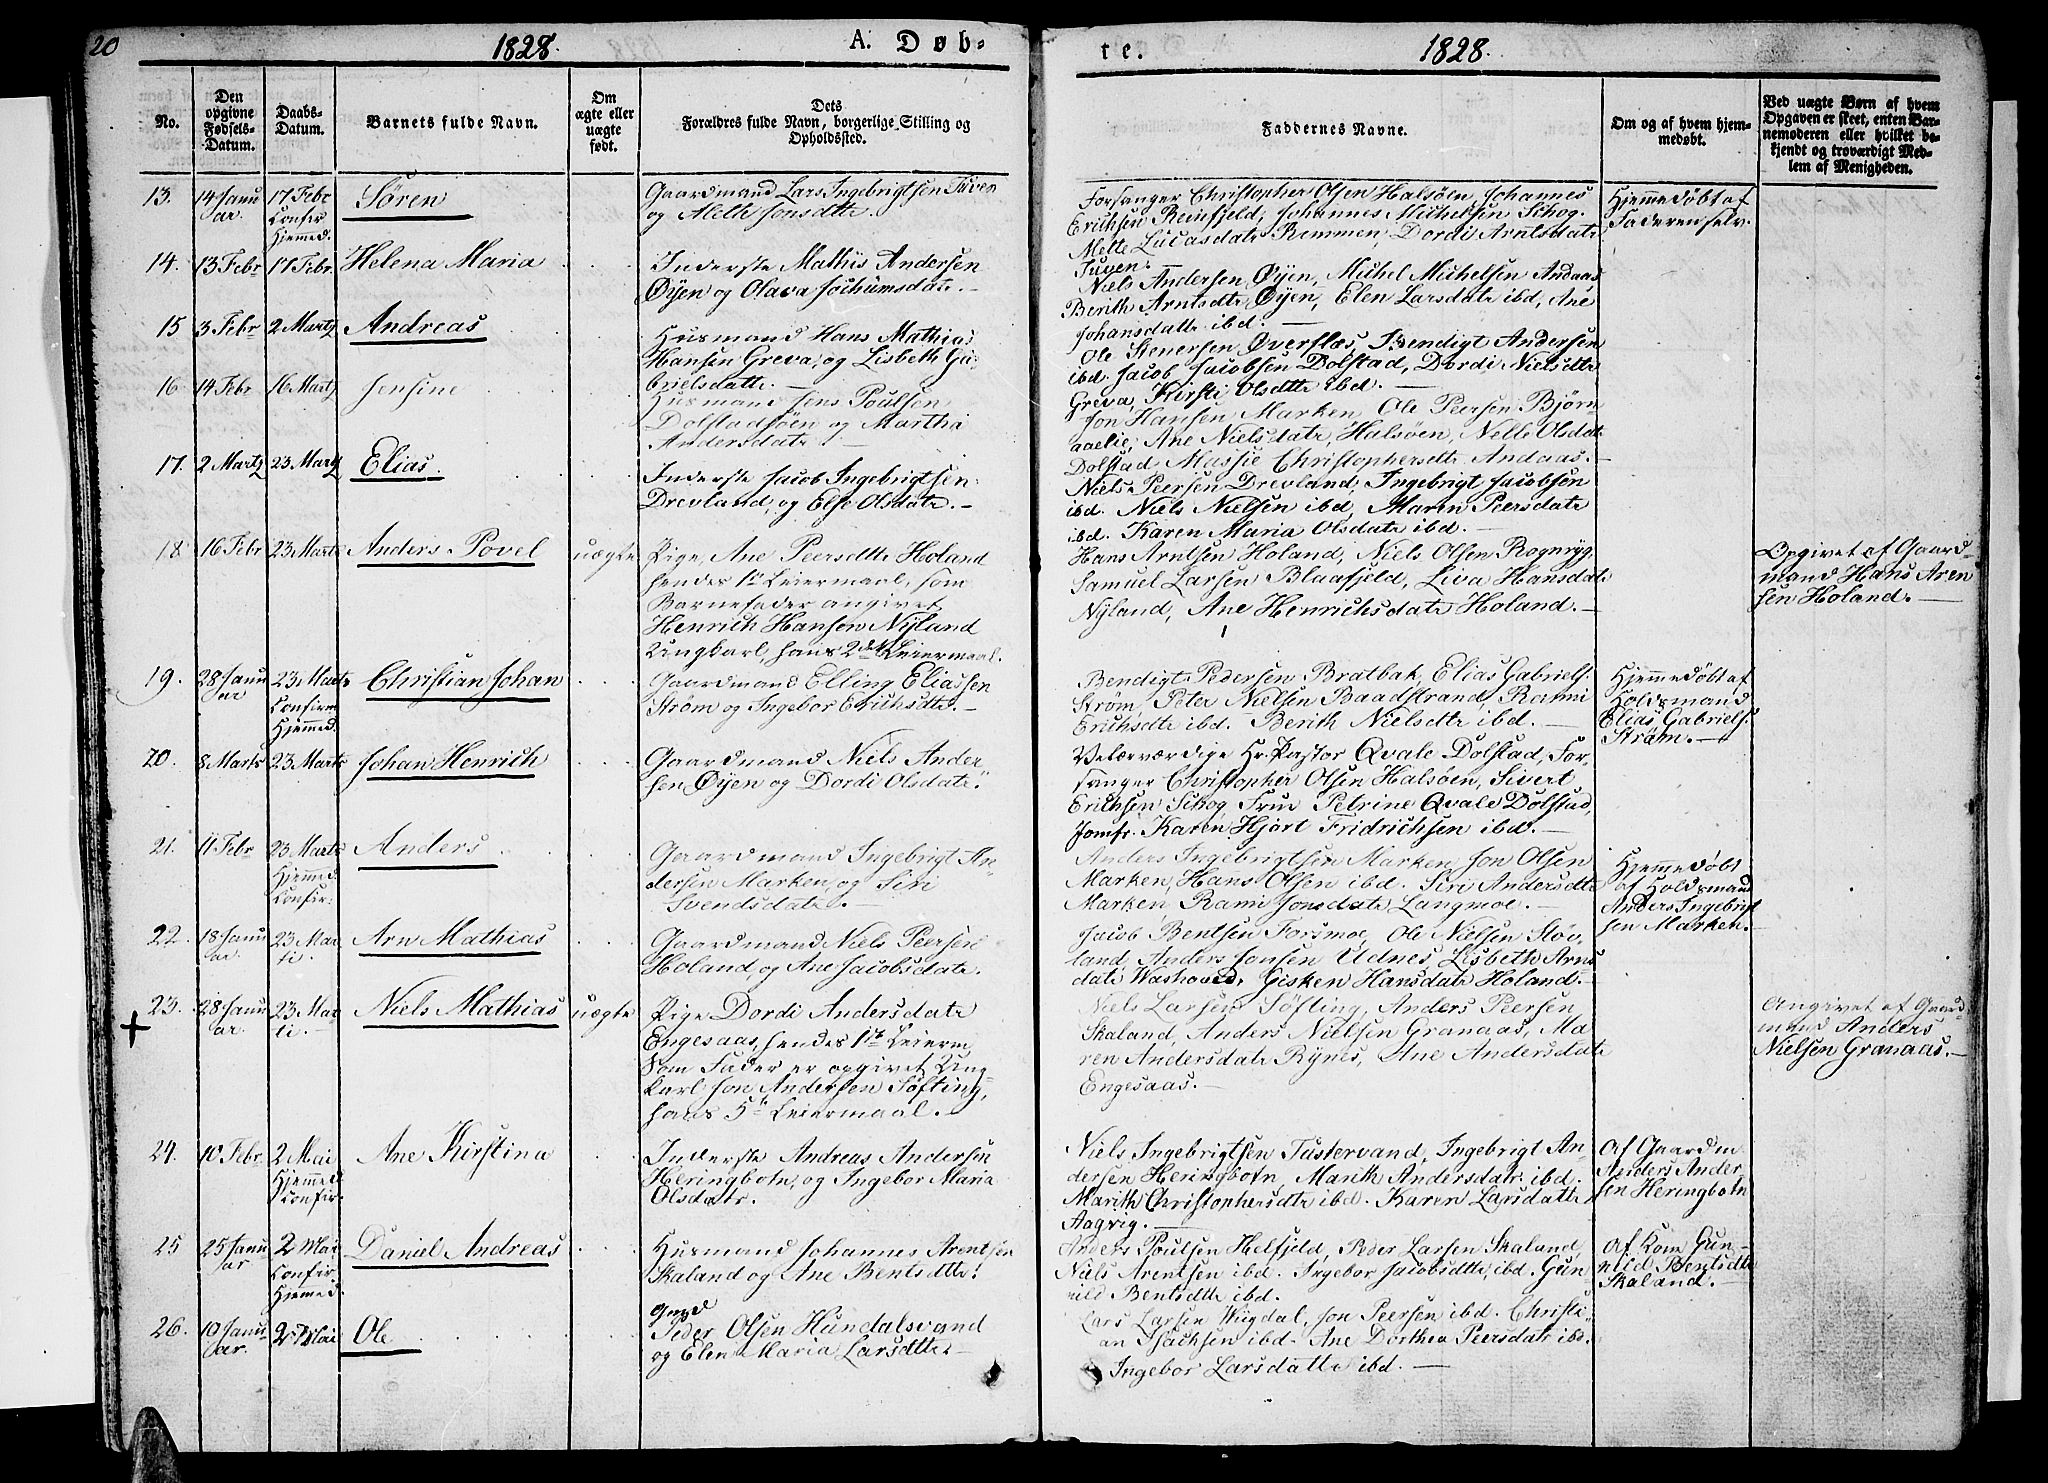 20
1828.
A. Døb-
te.
1828.
No.
Den opgivne Fødsels-Datum.
Daabs-Datum.
Barnets fulde Navn.
Om ægte eller uægte født.
Dets Forældres fulde Navn, borgerlige Stilling og Opholdssted.
Faddernes Navne.
Om og af hvem hjem-medøbt.
Ved uægte Børn af hvem Opgaven er skeet, enten Bar-nemoderen eller hvilket be-kjendt og troværdigt Med-lem af Menigheden.
13. 14 Janu 17 Febr Søren
ar. Confir
Hjemmed.
Gaardmand Lars Ingebrigtsen Tuven
og Aleth Jonsdtr.
Forsanger Christopher Olsen Halsøen, Johannes
Erichsen Reinfjeld, Johannes Michelsen Skog.
Mette Lucasdatr Remmen, Dordi Arntsdatr
Tuven.
Hjemmedøbt af
Faderen selv.
14. 13 Febr 17 Febr. Helena Maria
Inderste Mathis Andersen
Øyen og Olava Jochumsdatr.
Niels Andersen Øyen, Michel Michelsen Andaas
Berith Arntsdtr Øyen, Elen Larsdatr ibd, Ane
Johansdatr ibd.
15 3 Febr 2 Martz Andreas
Husmand Hans Mathias
Hansen Greva, og Lisbeth Ga-
brielsdatter.
Ole Stenersen Øverflæs, Bendigt Andersen
ibd. Jacob Jacobsen Dolstad, Dordi Nielsdtr
Greva, Kirsti Olsdtr ibd.
16. 14 Febr 16 Martz Jensine
Husmand Jens Poulsen
Dolstadsøen og Martha
Andersdatr.
Jon Hansen Marken Ole Peersen Bjørn-
aalie, Ane Nielsdatr, Halsøen, Nells Olsdatr
Dolstad, Massie Christophersdtr Andaas.
17. 2 Martz 23 Martz Elias.
Inderste Jacob Ingebrigtsen
Drevland, og Else Olsdatr.
Niels Peersen Drevland, Ingebrigt Jacobsen
ibd. Niels Nielsen ibd, Maren Peersdatr
ibd. Karen Maria Olsdatr ibd.
18 16 Febr 23 Marts Anders Povel uægte
Pige, Ane Peersdtr Holand
hendes 1te Leiermaal, som
Barnefader angivet
Henrich Hansen Nyland
Ungkarl, hans 2det Leiermaal.
Hans Arntsen Holand, Niels Olsen Rognryg
Samuel Larsen Blaafjeld, Liva Hansdatr
Nyland, Ane Henrichsdatr Holand.
Opgivet af Gaard-
mand Hans Aren
sen Holand.
19. 28 Janu 23 Marts Christian Johan
ar Confirm
Hjemmed.
Gaardmand Elling Eliassen
Strøm og Ingebor Erichsdtr.
Bendigt Pedersen Bratbak, Elias Gabriels.
Strøm, Peter Nielsen Baadstrand, Rammi
Erichsdtr ibd. Berith Nielsdtr ibd.
Hjemmedøbt af
Holdsmand
Elias Gabriels.
Strøm.
20. 8 Marts 23 Marts Johan Henrich
Gaardmand Niels Ander
sen Øyen og Dordi Olsdatr.
Velærværdige Hr. Pastor Qvale Dolstad, For-
sanger Christopher Olsen Halsøen, Sivert
Erichsen Skog Frue Petrine Qvale Dolstad,
Jomfr. Karen Hjort Fridrichsen ibd.
21. 11 Febr 23 Marts Anders
Hjemmed
Confir:
Gaardmand Ingebrigt An-
dersen Marken, og Siri
Svendsdatr.
Anders Ingebrigtsen Marken, Jon Olsen
Marken, Hans Olsen ibd. Siri Andersdtr
Marken Rami Jonsdatr Langmoe.
Hjemmedøbt
af Holdsmand
Anders Ingebrigt
sen Marken.
22. 18 Janu 23 Mar Arn Mathias
ar. ti.
Gaardmand Niels Peersen
Holand, og Ane Jacobsdatr.
Jacob Bentsen Forsmoe, Ole Nielsen Støv-
land, Anders Jonsen Udnes Lisbeth Arns
datr Washoved, Gisken Hansdatr Holand.
23. 28 Janu 23 Mar Niels Mathias uægte
ar. ti.
Pige Dordi Andersdatr
Engesaas, hendes 1te Leierm
Som Fader er opgivet Ung-
karl Jon Andersen Søfting,
hans 5te Leiermaal.
Niels Larsen Søfting, Anders Peersen
Skaland, Anders Nielsen Granaas, Ma
ren Andersdatr Rynes, Ane Andersdatr
Engesaas.
Angivet af Gaard-
mand Anders
Nielsen Granaas.
24. 10 Febr. 2 Mai Ane Kirstina
Hjemmed
Confir.
Inderste Andreas Andersen
Heringbotn, og Ingebor Maria
Olsdatr.
Niels Ingebrigtsen Tustervand, Ingebrigt An
dersen Heringbotn, Marith Andersdatr ibd.
Marith Christophersdtr ibd. Karen Larsdatter
Aagvig.
Af Gaardm
Anders Ander
sen Heringbotn
25 25 Janu 2 Mai Danial Andreas
ar. Confir
Hjemmed.
Husmand Johannes Arentsen
Skaland og Ane Bentsdtr.
Anders Poulsen Helfjeld, Peder Larsen Skaland,
Niels Arentsen ibd. Ingebor Jacobsdtr, ibd. Gun
nild Bentsdtr ibd.
Af Kone Gun-
nild Bentsdtr
Skaland.
26. 10 Janu 2 Mai Ole
ar.
Gmd
Peder Olsen Hundalsvand
og Elen Maria Larsdtr
Lars Larsen Wigdal, Jon Peersen ibd. Christi
an Isachsen ibd. Ane Dorthea Peersdatr ibd.
Ingebor Larsdatter ibd.